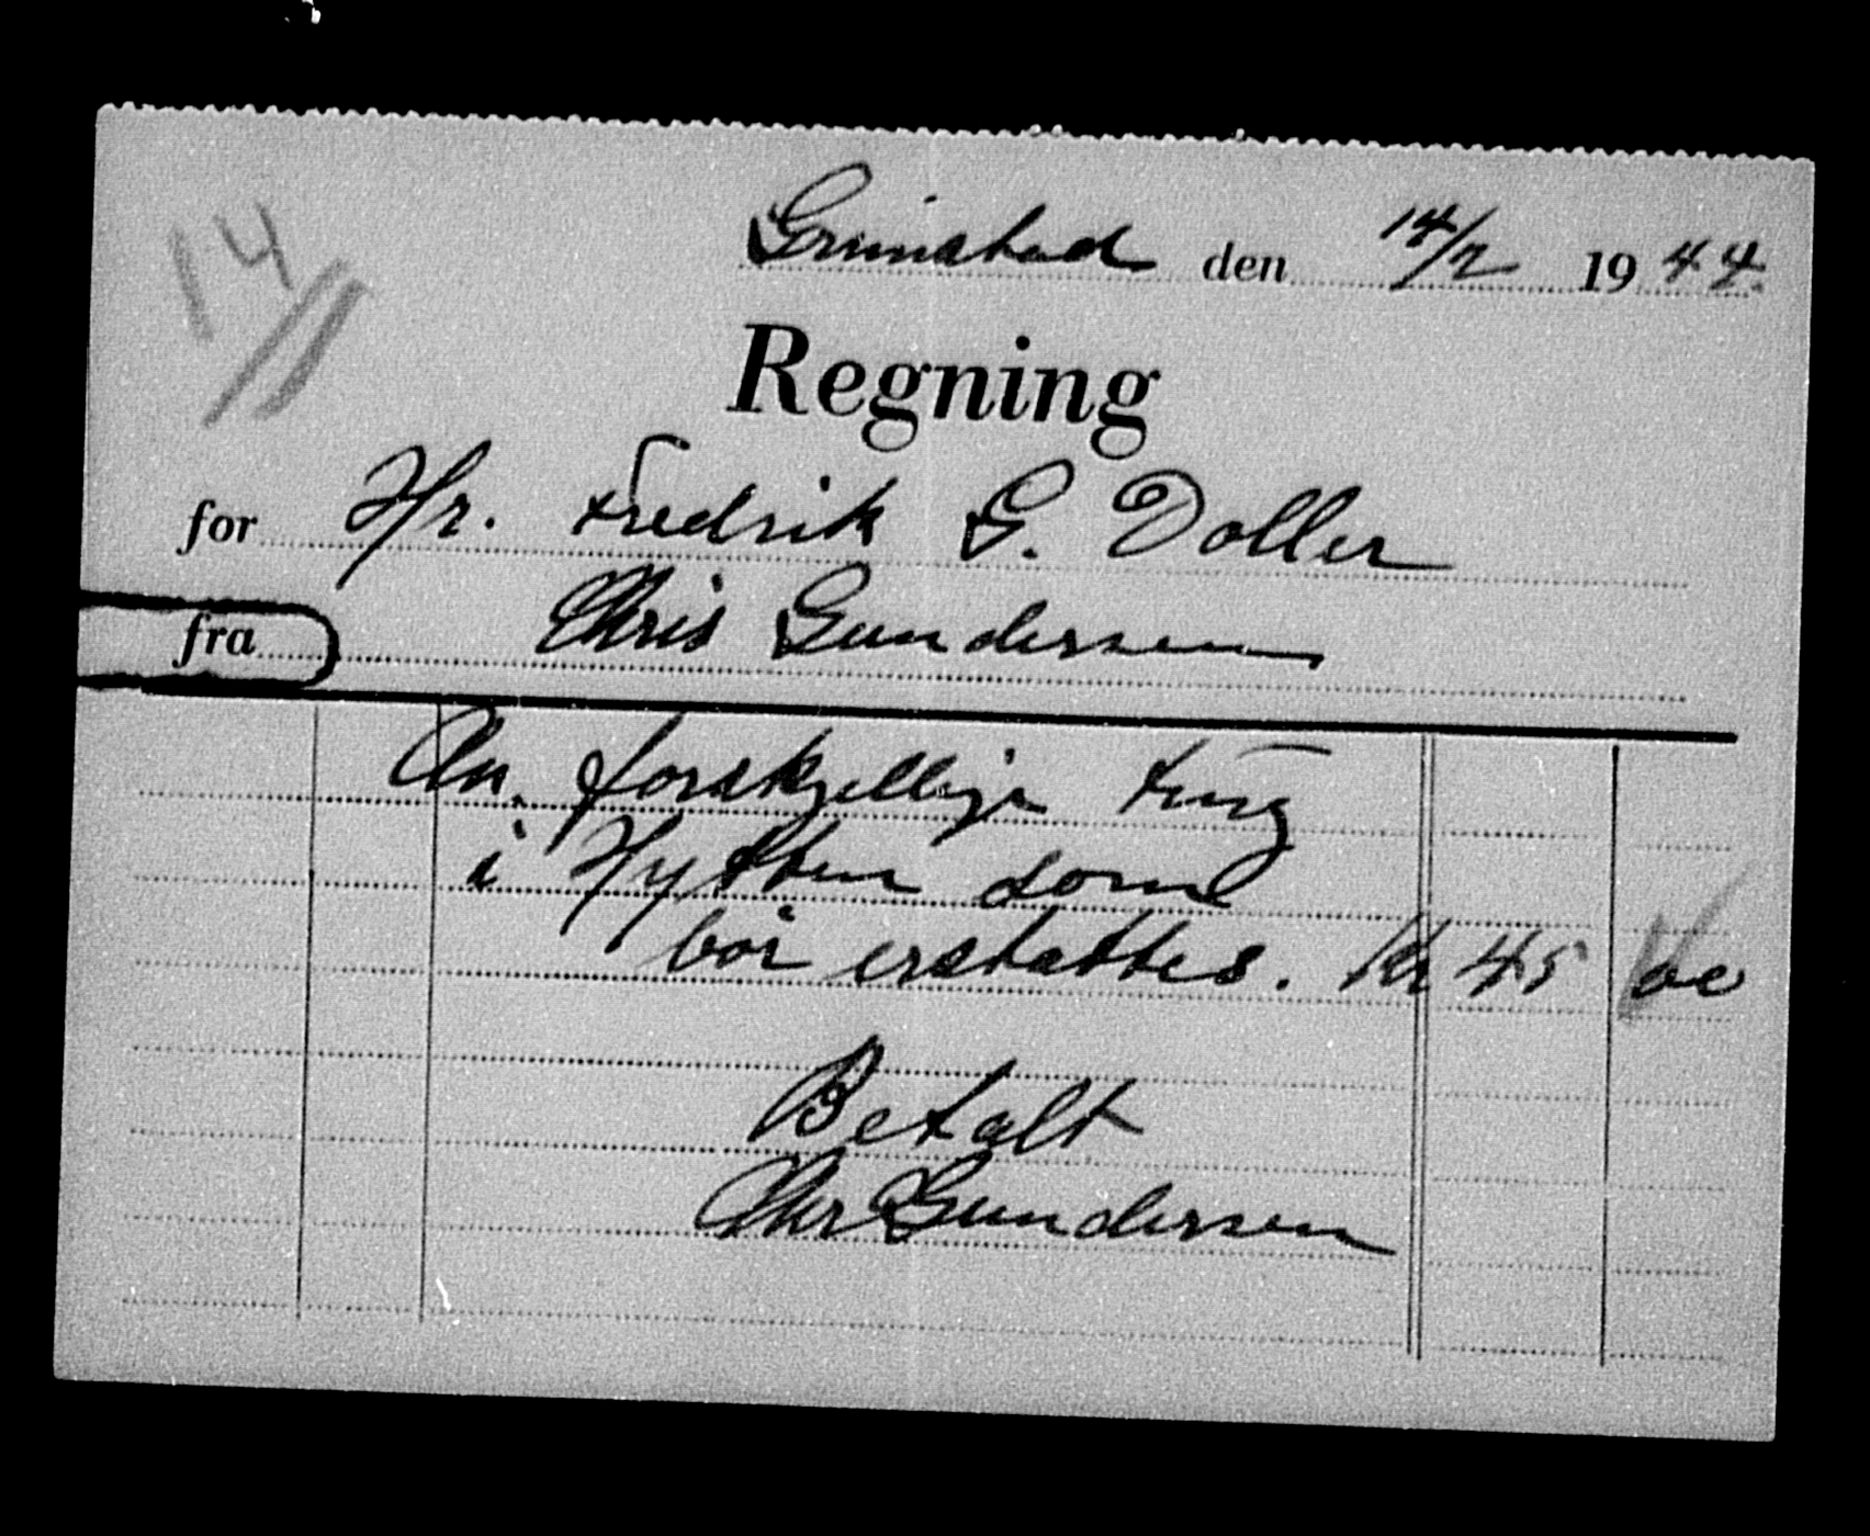 Grimstad den 14/2 1944.
14//
Regning
for Hr. Fredrik G. Doller
fra Chris Gundersen
An. forskjellige ting
i Hytten som
bør erstattes. Kr 45 00
Betalt
Chr Gundersen